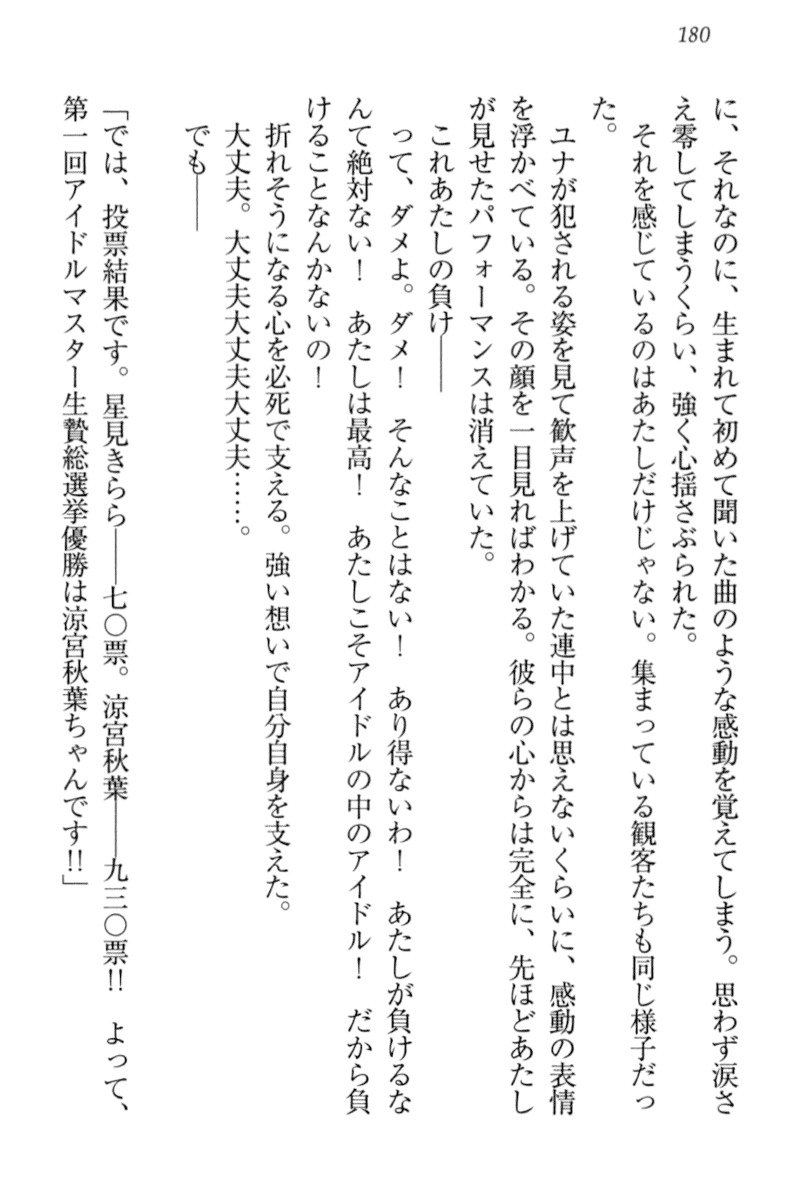 180
に、それなのに、生まれて初めて聞いた曲のような感動を覚えてしまう。思わず涙さ
え零してしまうくらい、強く心揺さぶられた。
　それを感じているのはあたしだけじゃない。集まっている観客たちも同じ様子だっ
た。
　ユナが犯される姿を見て歓声を上げていた連中とは思えないくらいに、感動の表情
を浮かべている。その顔を一目見ればわかる。彼らの心からは完全に、先ほどあたし
が見せたパフォーマンスは消えていた。
　これあたしの負け――
　って、ダメよ。ダメ！　そんなことはない！　あり得ないわ！　あたしが負けるな
んて絶対ない！　あたしは最高！　あたしこそアイドルの中のアイドル！　だから負
けることなんかないの！
　折れそうになる心を必死で支える。強い想いで自分自身を支えた。
　大丈夫。大丈夫大丈夫大丈夫……。
　でも――
「では、投票結果です。星見きらら――七〇票。涼宮秋葉――九三〇票!!　よって、
第一回アイドルマスター生贄総選挙優勝は涼宮秋葉ちゃんです!!」